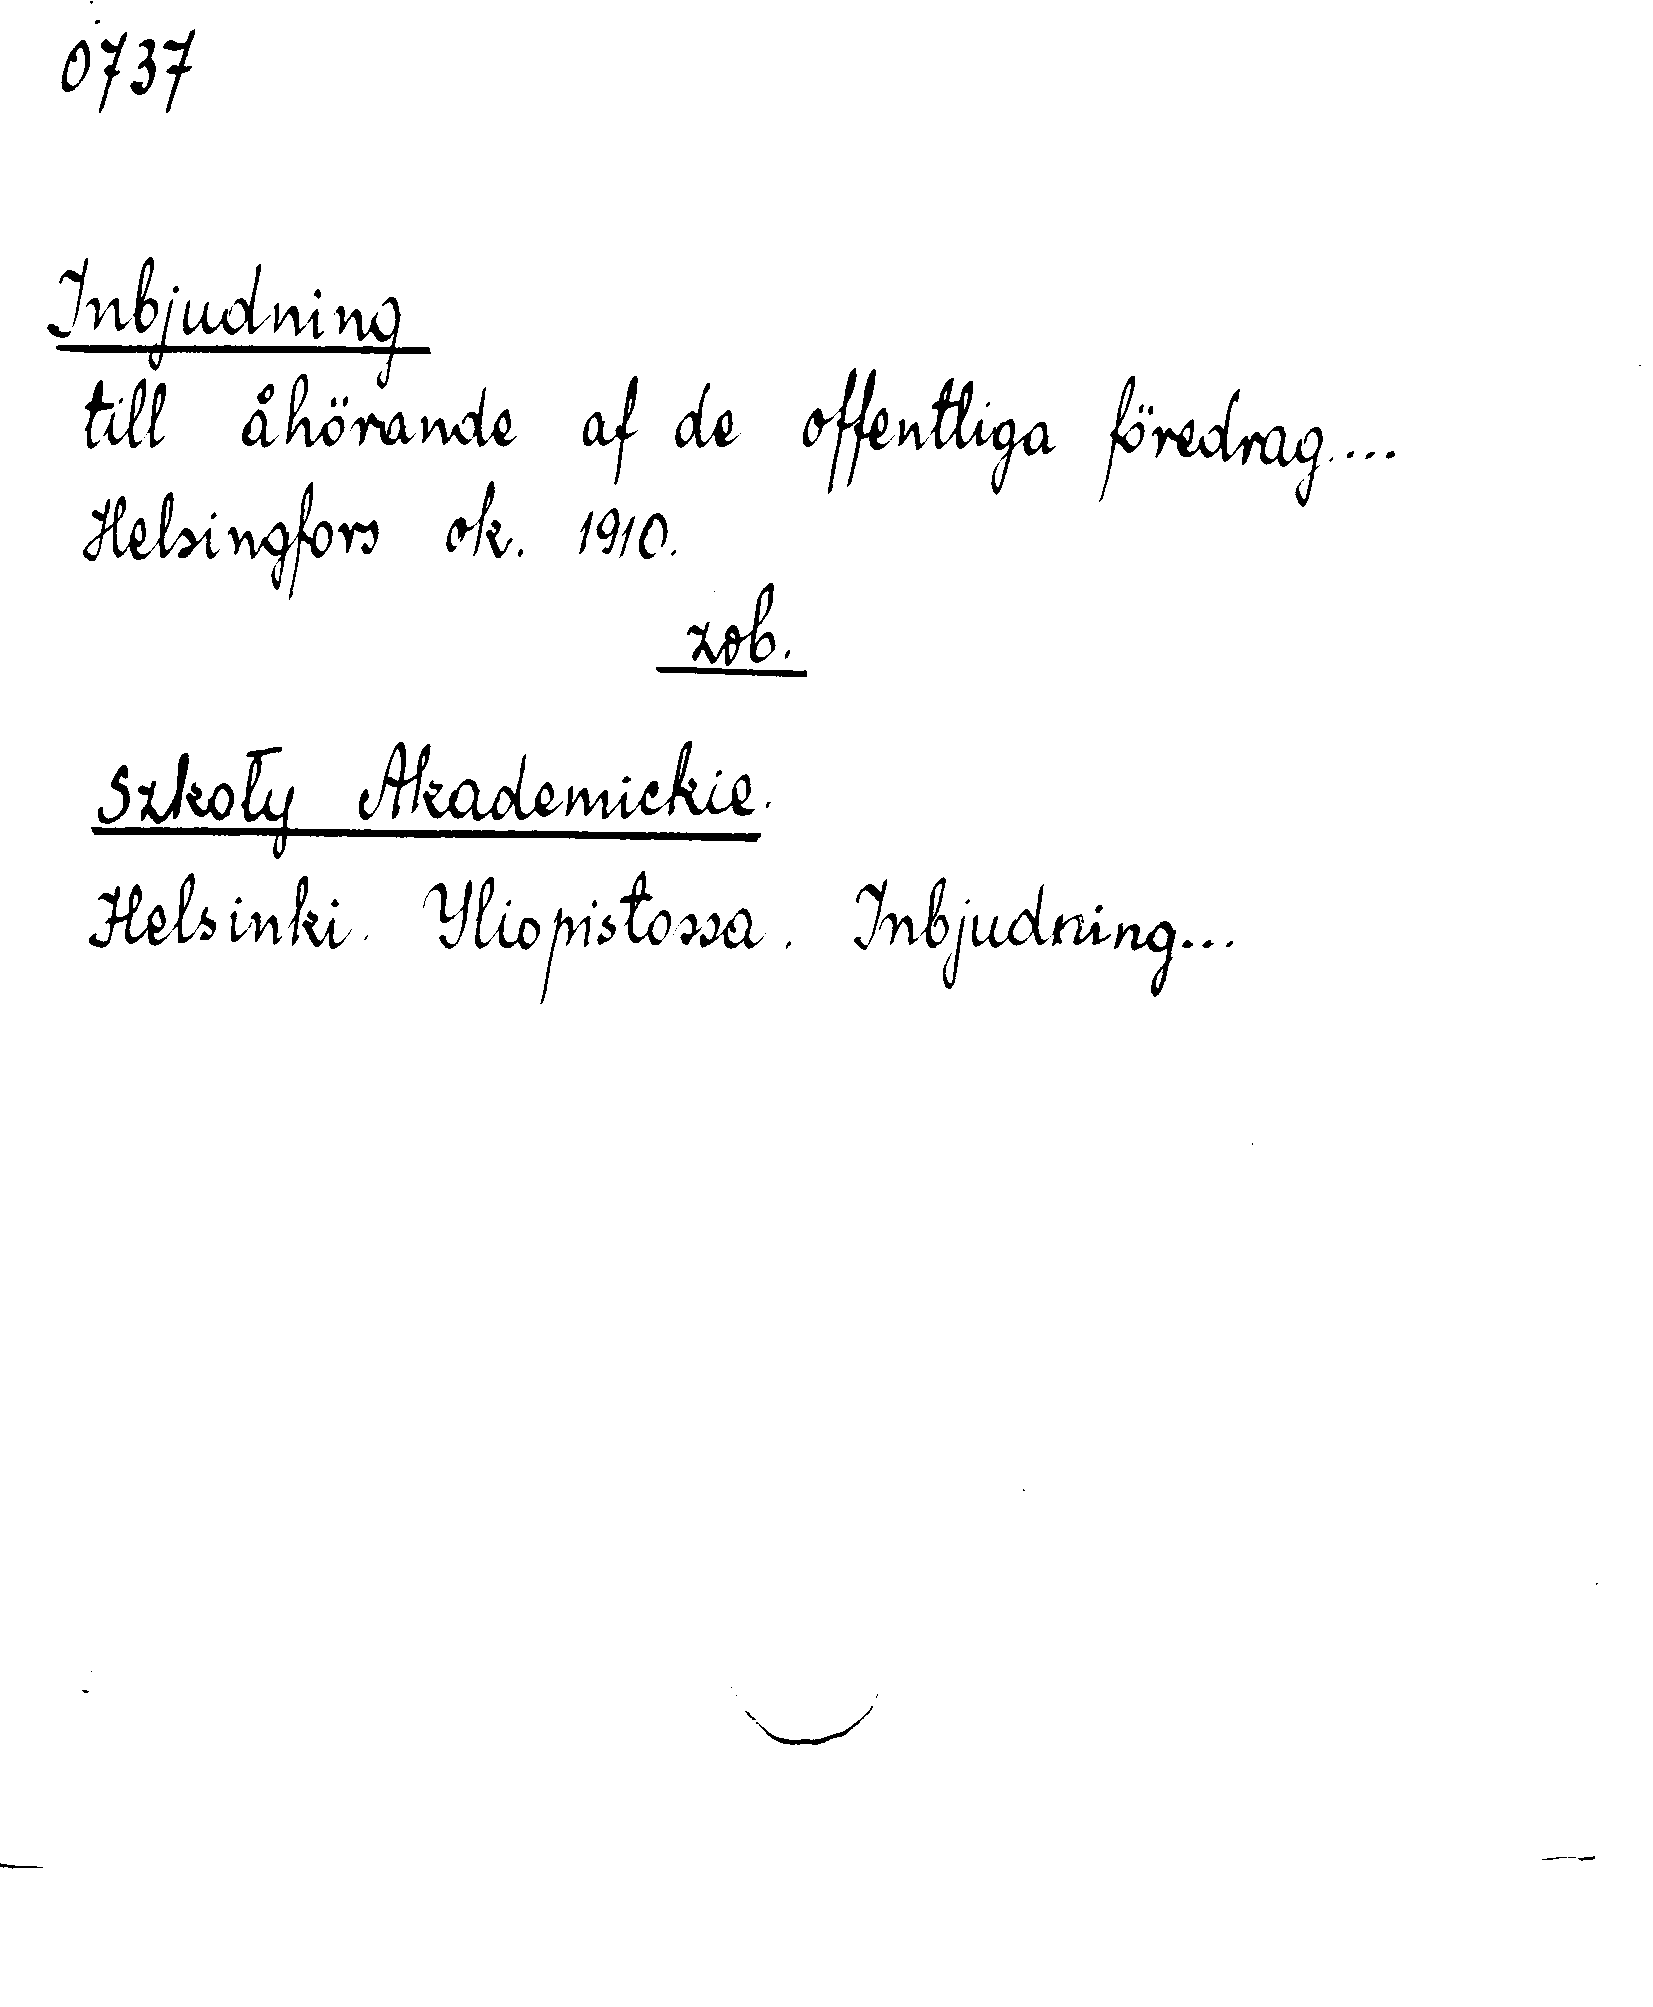 0737
Inbjudning
till åhörande af de offentliga föredrag....
Helsingfors ok. 1910.
zob.
Szkoły Akademickie.
Helsinki. Yliopistossa. Inbjudning...